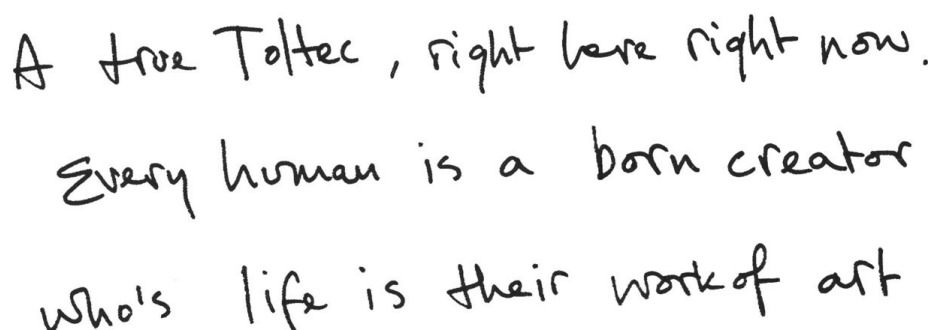 A true Toltec, right here right now.
Every human is a born creator
who's life is their work of art